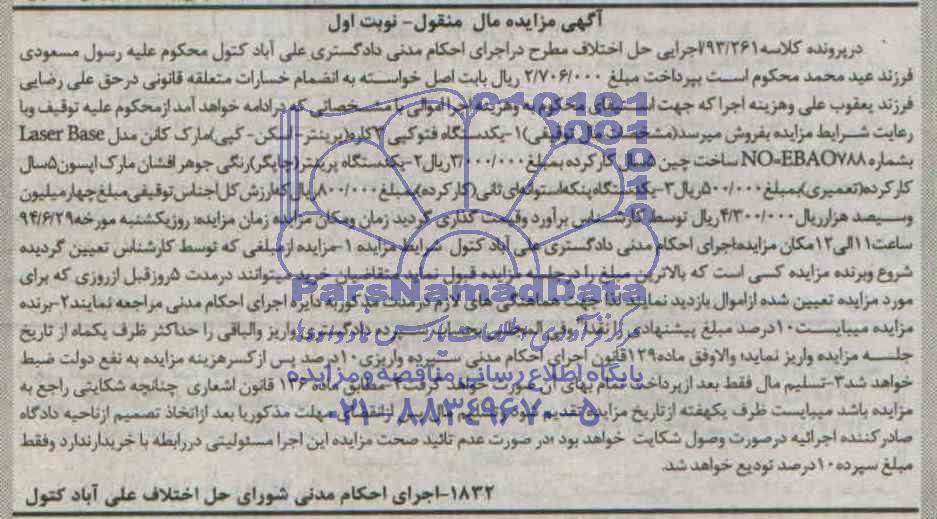 آگهی مزایده مال منقول- نوبت اول
درپرونده کلاسه ۹۳/۲۶۱/اجرایی حل اختلاف مطرح دراجرای احکام مدنی دادگستری علی آباد کتول محکوم علیه رسول مسعودی
فرزند عید محمد محکوم است بپرداخت مبلغ ۲/۷۰۶/۰۰۰ ریال بابت اصل خواسته به انضمام خسارات متعلقه قانونی درحق علی رضایی
فرزند یعقوب علی وهزینه اجرا که جهت استیفای محکوم به وهزینه اجرا اموالی با مشخصاتی که درادامه خواهد آمد ازمحکوم علیه توقیف وبا
رعایت شرایط مزایده بفروش میرسد(مشخصات مال توقیفی)۱-یکدستگاه فتوکپی ۳کاره(پرینتر- اسکن- کپی)مارک کانن مدل Laser Base
بشماره NO=EBAO۷۸۸ ساخت چین ۵سال کارکرده بمبلغ ۳/۰۰۰/۰۰۰ریال۲-یکدستگاه پرینتر(چاپگر)رنگی جوهر افشان مارک اپسون۵سال
کارکرده(تعمیری)بمبلغ ۵۰۰/۰۰۰ریال۳-یکدستگاه پنکه استوانه ای ثانی(کارکرده)بمبلغ ۸۰۰/۰۰۰ریال که ارزش کل اجناس توقیفی مبلغ چهارمیلیون
وسیصد هزارریال۴/۳۰۰/۰۰۰ریال توسط کارشناس برآورد وقیمت گذاری گردید زمان ومکان مزایده زمان مزایده: روزیکشنبه مورخه۹۴/۶/۲۹
ساعت۱۱الی۱۲مکان مزایده:اجرای احکام مدنی دادگستری علی آباد کتول شرایط مزایده ۱-مزایده ازمبلغی که توسط کارشناس تعیین گردیده
شروع وبرنده مزایده کسی است که بالاترین مبلغ را درجلسه مزایده قبول نماید متقاضیان خرید میتوانند درمدت ۵روزقبل ازروزی که برای
مورد مزایده تعیین شده ازاموال بازدید نمایند لذا جهت هماهنگی های لازم درمدت مذکور به دایره اجرای احکام مدنی مراجعه نمایند۲-برنده
مزایده میبایست۱۰درصد مبلغ پیشنهادی را نقدا وفی المجلس بحساب سپرده دادگستری واریز والباقی را حداکثر ظرف یکماه از تاریخ
جلسه مزایده واریز نماید؛ والاوفق ماده۱۲۹قانون اجرای احکام مدنی سپرده واریزی۱۰درصد پس ازکسرهزینه مزایده به نفع دولت ضبط
خواهد شد۳-تسلیم مال فقط بعد ازپرداخت تمام بهای آن صورت خواهد گرفت۴-مطابق ماده ۱۳۶ قانون اشعاری چنانچه شکایتی راجع به
مزایده باشد میبایست ظرف یکهفته ازتاریخ مزایده تقدیم شود وتسلیم مال پس ازانقضای مهلت مذکوریا بعد ازاتخاذ تصمیم ازناحیه دادگاه
صادرکننده اجرائیه درصورت وصول شکایت خواهد بود ،در صورت عدم تائید صحت مزایده این اجرا مسئولیتی دررابطه با خریدارندارد وفقط
مبلغ سپرده ۱۰درصد تودیع خواهد شد.
۱۸۳۲-اجرای احکام مدنی شورای حل اختلاف علی آباد کتول
ParsNamadData
پایگاه اطلاع رسانی مناقصه و مزایده
۰۲۱-۸۸۳۴۹۶۷۰-۵